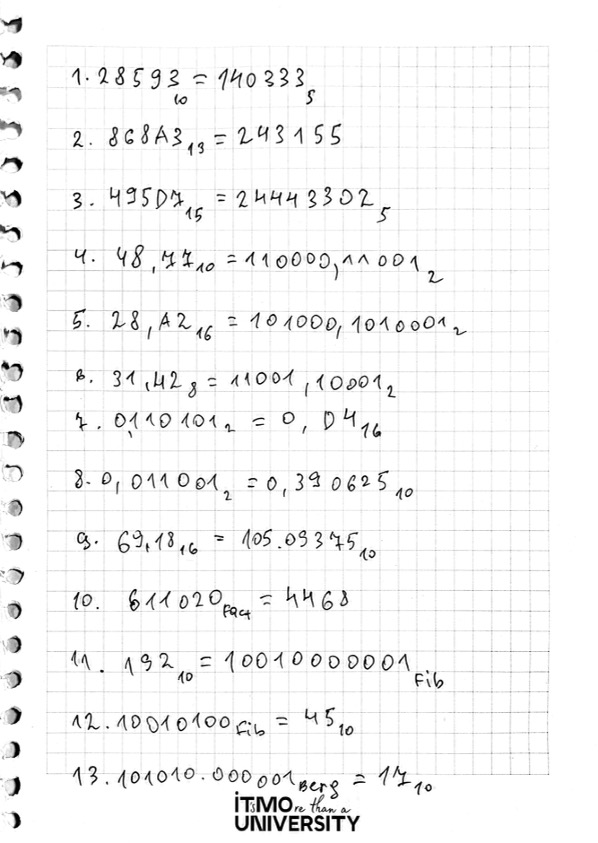 1. 28593₁₀ = 140333₅
2. 868A3₁₃ = 243155
3. 495D7₁₅ = 24443302₅
4. 48,77₁₀ = 110000,11001₂
5. 28,A2₁₆ = 101000,1010001₂
6. 31,42₈ = 11001,10001₂
7. 0,110101₂ = 0,D4₁₆
8. 0,011001₂ = 0,390625₁₀
9. 69,18₁₆ = 105.09375₁₀
10. 611020Fact = 4468
11. 192₁₀ = 10010000001Fib
12. 10010100Fib = 45₁₀
13. 101010.000001Berg = 17₁₀
ITsMOre than a
UNIVERSITY